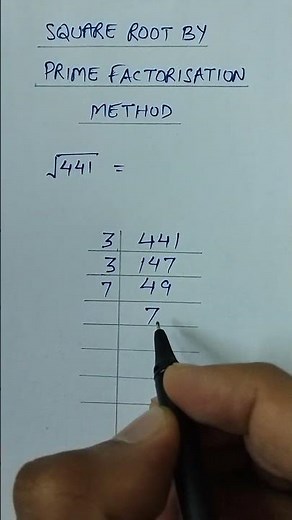 SQUARE ROOT BY
PRIME FACTORISATION
METHOD
√441 =
3 | 441
3 | 147
7 | 49
| 7